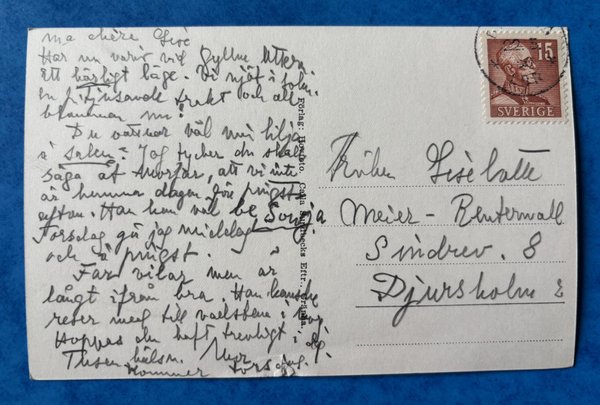 ma chère Gisè
Har nu varit vid Gyllne Uttern.
ett härligt läge. Vi njöt i
en tjusande frukt och allt
blommar nu!
Du vattnar väl min lilja
i salen? Jag tycker du skall
säga åt morfar, att vi inte
är hemma dagen för pingst-
afton. Han kan väl be Sonja
Torsdag går jag middag
och i pingst.
Far vilar men är
långt ifrån bra. Han kanske
reser med till
Hoppas du haft trevligt i dag.
Tusen hälsn. Mor
Kommer torsdag.
Förlag:
Eftr., Gränna.
15
SVERIGE
Fröken Giselotte
Meier-Rentermall
Sindrev. 8
Djursholm 2